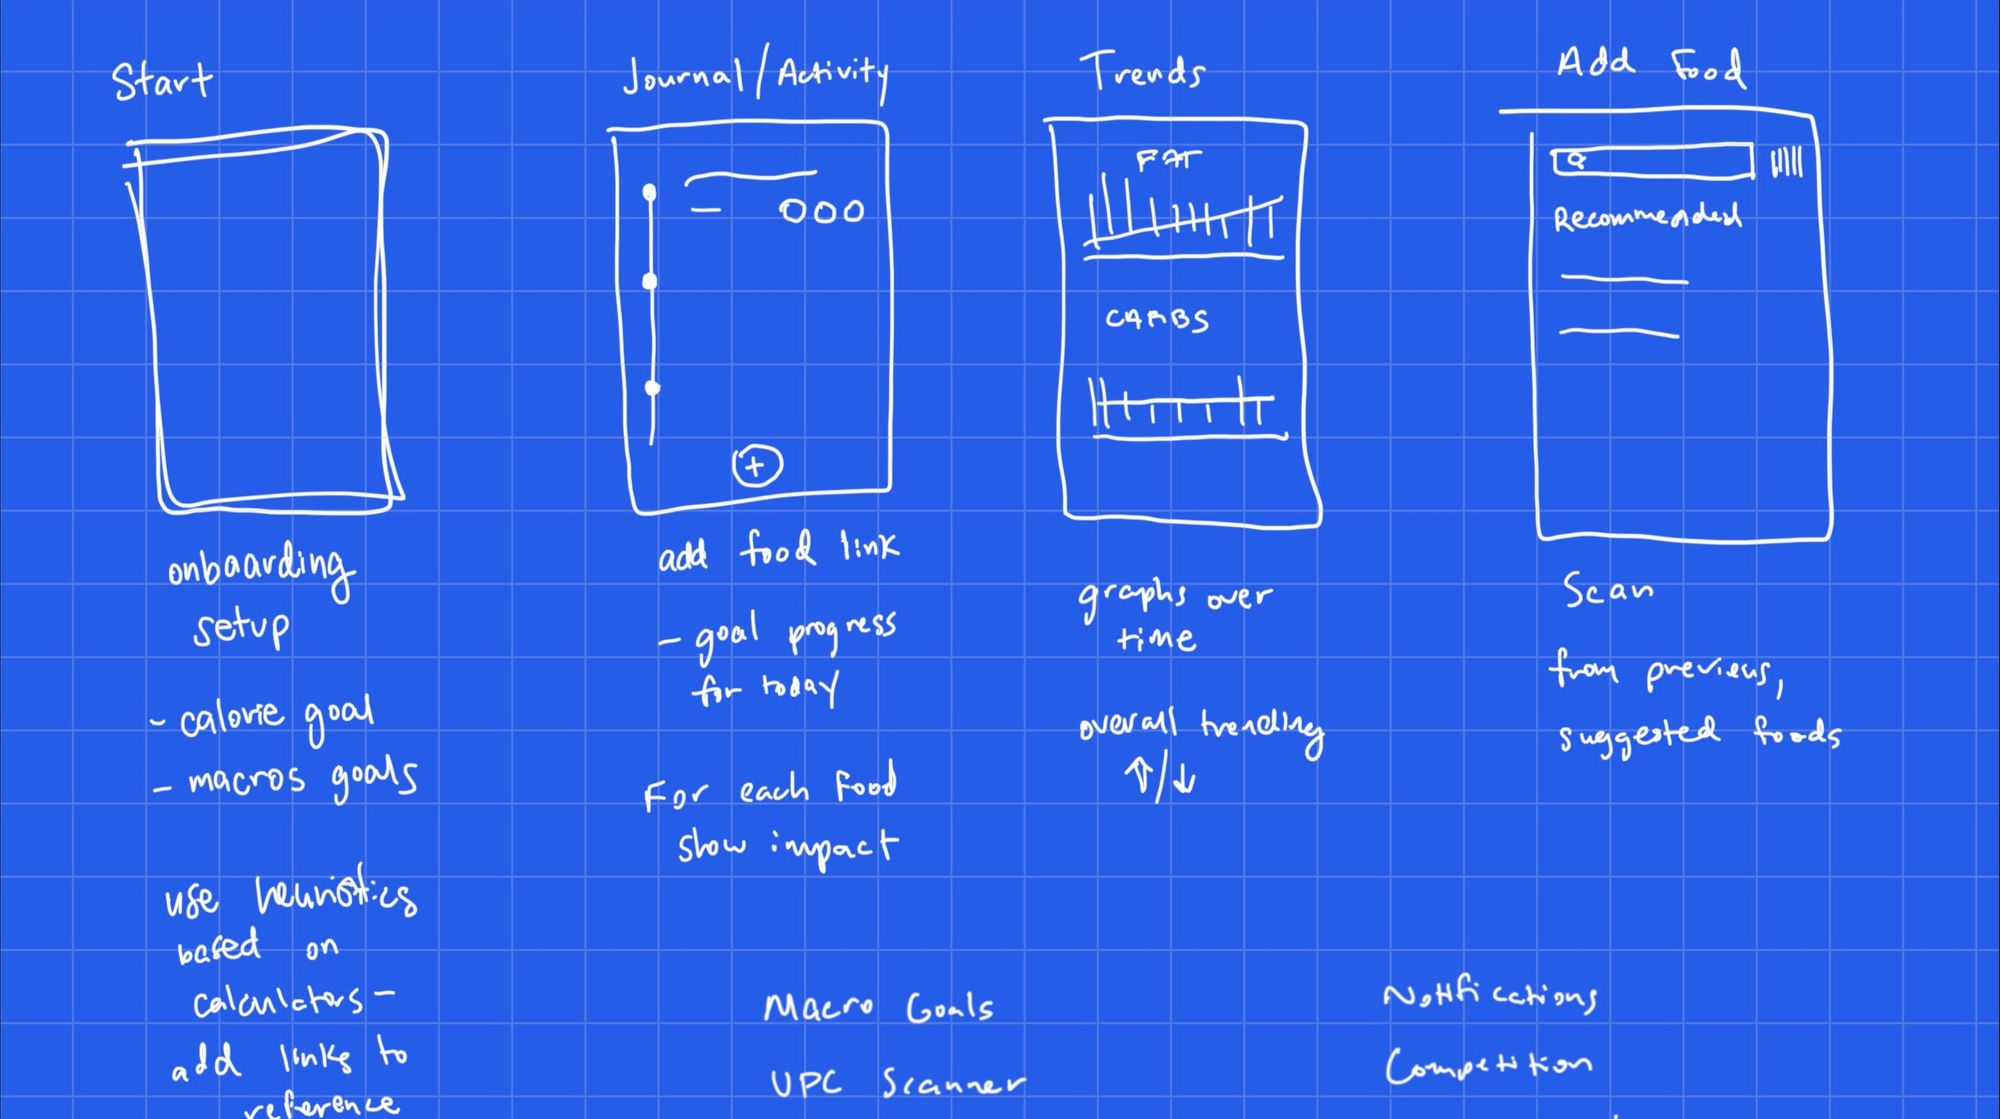 Start
onbaarding
setup
- calorie goal
- macros goals
use heuristics
based on
calculators -
add links to
reference
Journal/Activity
add food link
- goal progress
for today
For each food
show impact
Trends
FAT
CARBS
graphs over
time
overall trending
↑/↓
Add Food
Recommended
Scan
from previous,
suggested foods
Macro Goals
UPC Scanner
Notifications
Competition